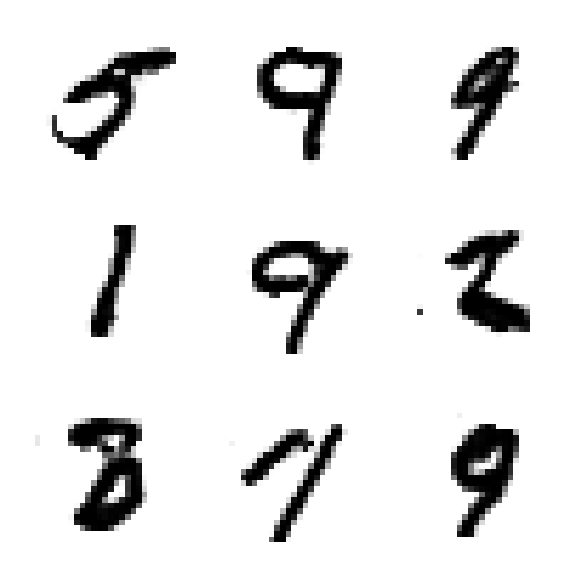 5 9 9
1 9 2
8 7 9